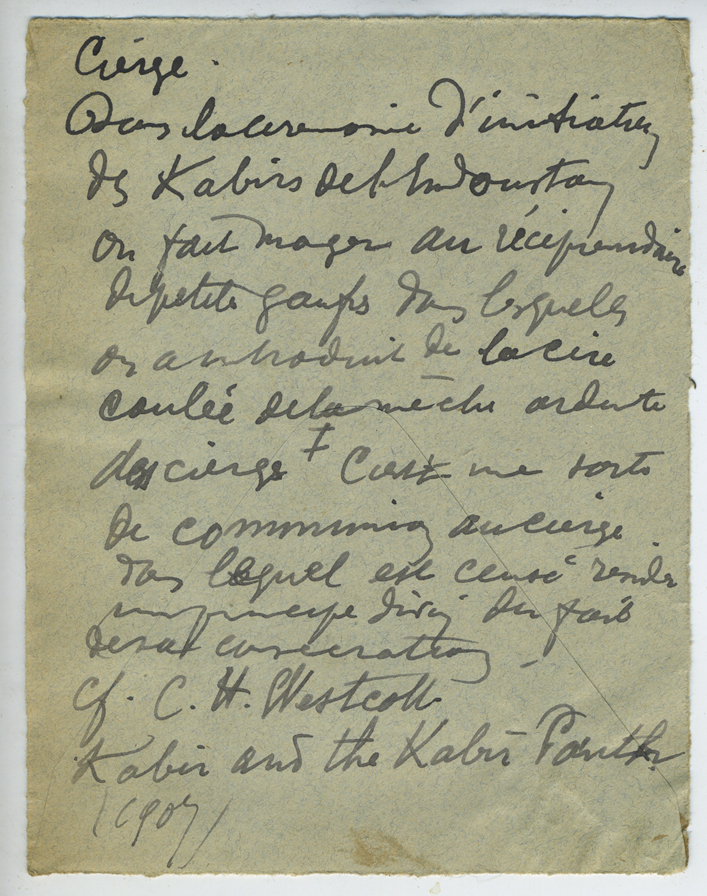 Cierge.
Dans la ceremonie d'initiation
des Kabirs de l'Indoustan
on fait manger au récipiendaire
de petits gaufres dans lesquelles
on a introduit de la cire
coulée de la mèche ardente
des cierges I C'est une sorte
de communion au cierge
dans lequel est censé resider
un principe divin du fait
de sa consecration -
cf. C. H. Westcott
Kabir and the Kabir Panth.
(1907)